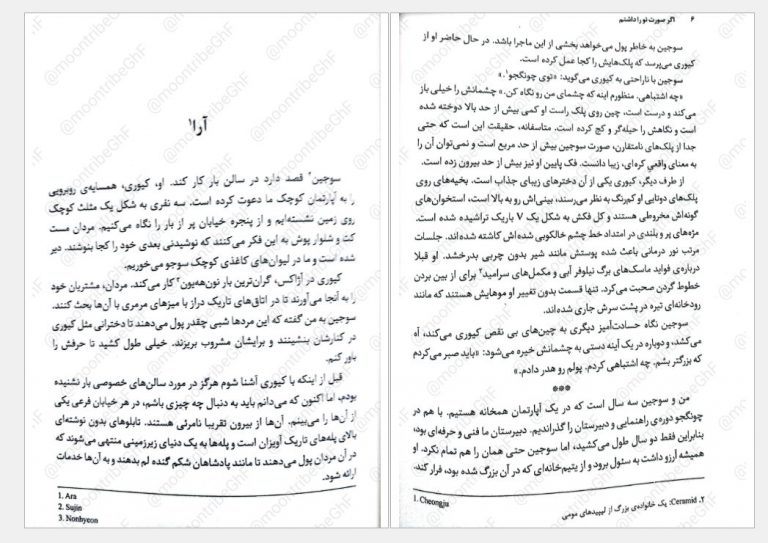 آرا¹
سوجین² قصد دارد در سالن بار کار کند. او، کیوری، همسایه‌ی روبرویی
را به آپارتمان کوچک ما دعوت کرده است. سه نفری به شکل یک مثلث کوچک
روی زمین نشسته‌ایم و از پنجره خیابان پر از بار را نگاه می‌کنیم. مردان مست
کت و شلوار پوش به این فکر می‌کنند که نوشیدنی بعدی خود را کجا بنوشند. دیر
شده است و ما در لیوان‌های کاغذی کوچک سوجو می‌خوریم.
کیوری در آژاکس، گران‌ترین بار نون‌هه‌یون³ کار می‌کند. مردان، مشتریان خود
را به آنجا می‌آورند تا در اتاق‌های تاریک دراز با میزهای مرمری با آن‌ها بحث کنند.
سوجین به من گفته که این مردها شبی چقدر پول می‌دهند تا دخترانی مثل کیوری
در کنارشان بنشینند و برایشان مشروب بریزند. خیلی طول کشید تا حرفش را
باور کنم.
قبل از اینکه با کیوری آشنا شوم هرگز در مورد سالن‌های خصوصی بار نشنیده
بودم، اما اکنون که می‌دانم باید به دنبال چه چیزی باشم، در هر خیابان فرعی یکی
از آن‌ها را می‌بینم. آن‌ها از بیرون تقریبا نامرئی هستند. تابلوهای بدون نوشته‌ای
بالای پله‌های تاریک آویزان است و پله‌ها به یک دنیای زیرزمینی منتهی می‌شوند که
در آن مردان پول می‌دهند تا مانند پادشاهان شکم گنده لم بدهند و به آن‌ها خدمات
ارائه شود.
1. Ara
2. Sujin
3. Nonhyeon
۶ اگر صورت تو را داشتم
سوجین به خاطر پول می‌خواهد بخشی از این ماجرا باشد. در حال حاضر او از
کیوری می‌پرسد که پلک‌هایش را کجا عمل کرده است.
سوجین با ناراحتی به کیوری می‌گوید: «توی چونگجو¹.»
«چه اشتباهی. منظورم اینه که چشمای من رو نگاه کن.» چشمانش را خیلی باز
می‌کند و درست است، چین روی پلک راست او کمی بیش از حد بالا دوخته شده
است و نگاهش را حیله‌گر و کج کرده است. متاسفانه، حقیقت این است که حتی
جدا از پلک‌های نامتقارن، صورت سوجین بیش از حد مربع است و نمی‌توان آن را
به معنای واقعیِ کره‌ای، زیبا دانست. فک پایین او نیز بیش از حد بیرون زده است.
از طرف دیگر، کیوری یکی از آن دخترهای زیبای جذاب است. بخیه‌های روی
پلک‌های دوتایی او کم‌رنگ به نظر می‌رسند، بینی‌اش رو به بالا است، استخوان‌های
گونه‌اش مخروطی هستند و کل فکش به شکل یک V باریک تراشیده شده است.
مژه‌های پر و بلندی در امتداد خط چشم خالکوبی شده‌اش کاشته شده‌اند. جلسات
مرتب نور درمانی باعث شده پوستش مانند شیر بدون چربی بدرخشد. او قبلا
درباره‌ی فواید ماسک‌های برگ نیلوفر آبی و مکمل‌های سرامید² برای از بین بردن
خطوط گردن صحبت می‌کرد. تنها قسمت بدون تغییر او موهایش هستند که مانند
رودخانه‌ای تیره در پشت سرش جاری شده‌اند.
سوجین نگاه حسادت‌آمیز دیگری به چین‌های بی نقص کیوری می‌کند، آه
می‌کشد، و دوباره در یک آینه دستی به چشمانش خیره می‌شود: «باید صبر می‌کردم
که بزرگتر بشم. چه اشتباهی کردم. پولم رو هدر دادم.»
***
من و سوجین سه سال است که در یک آپارتمان همخانه هستیم. با هم در
چونگجو دوره‌ی راهنمایی و دبیرستان را گذراندیم. دبیرستان ما فنی و حرفه‌ای بود،
بنابراین فقط دو سال طول می‌کشید، اما سوجین حتی همان را هم تمام نکرد. او
همیشه آرزو داشت به سئول برود و از یتیم‌خانه‌ای که در آن بزرگ شده بود، فرار کند.
1. Cheongju
۲. Ceramid: یک خانواده‌ی بزرگ از لیپیدهای مومی
@moontribeGhF